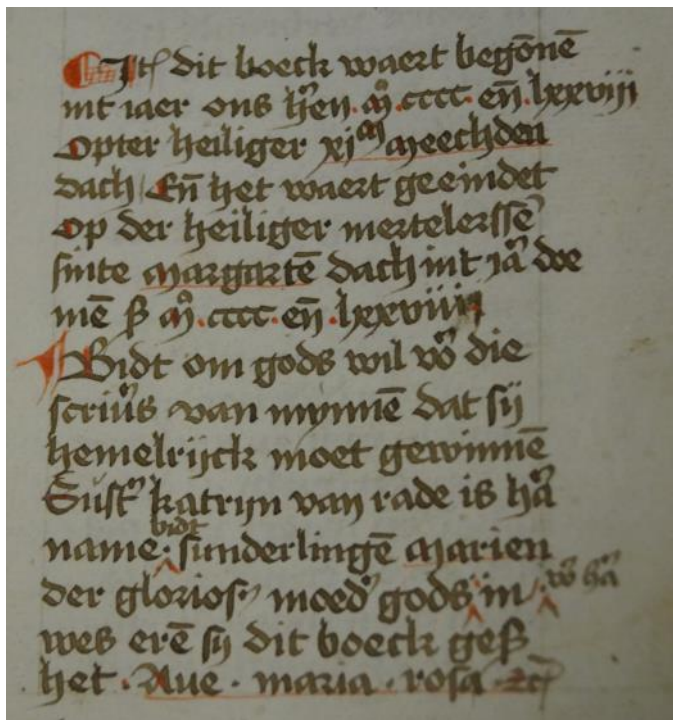 Itē dit boeck waert begōnē
int iaer ons h̄en · m̊ · cccc · eñ · lxxviij
opter heiliger xjᵐ meechden
dach / Eñ het waert geeindet
op der heiliger mertelerssē
sinte margartē dach int ia͛ doe
mē ß m̊ · cccc · eñ · lxxviiij
Bidt om gods wil vo͛ die
scriu͛s van mynnē dat sij
hemelrijck moet gewinnē
Sust͛ katrijn van rade is ha͛
name · bidt sunderlingē marien
der glorios moed͛ gods in vo͛ ha͛
wes erē sij dit boeck geß
het · Aue · maria · rosa · etc̄